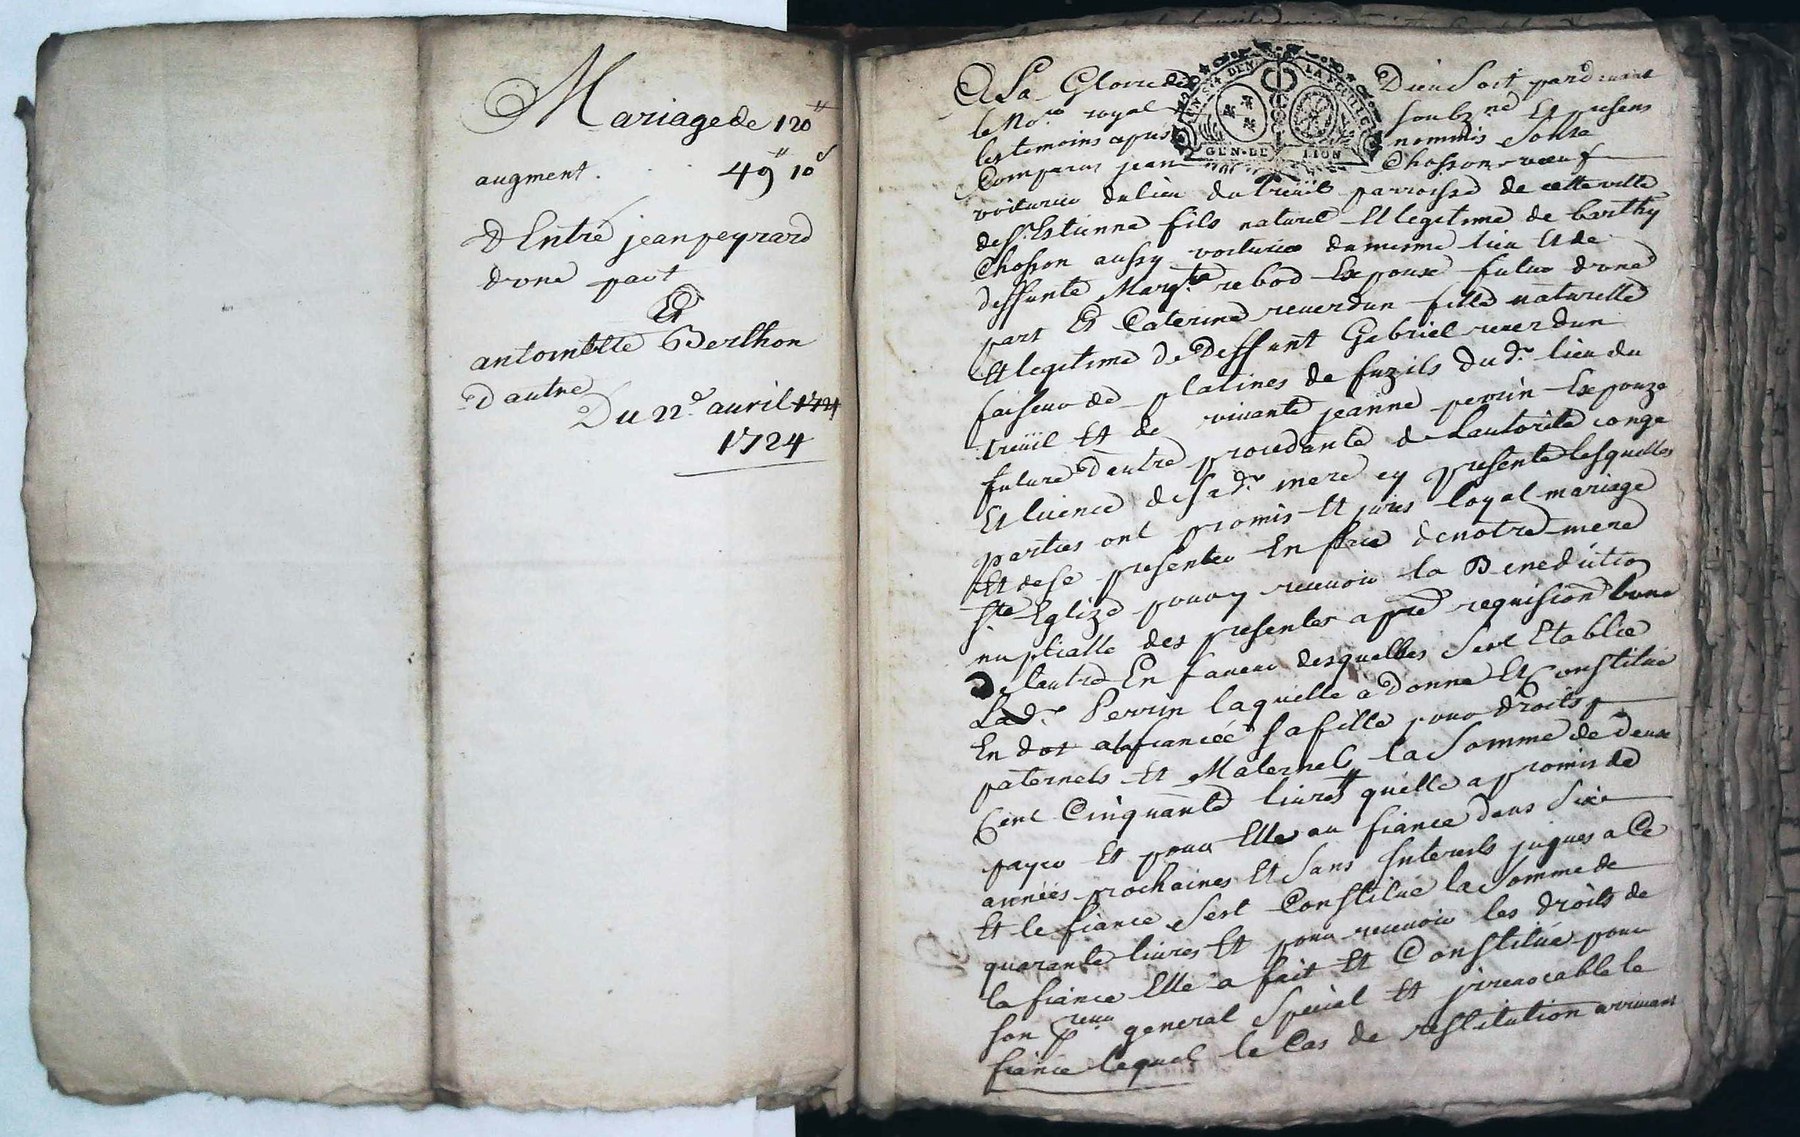 Mariage de 120 ₶
augment. 49 ₶ 10 s
D'Entre jean peyrard
d'une part
Et
antoinette Berthon
d'autre
Du 22e avril 1724
1724
A La Gloire de Dieu Soit pardevant
le No.re royal Soubz.né Et presens
les temoins apres nommés
Comparus jean Chosson vœuf
voiturier du lieu du treuil parroisse de cette ville
de St Estienne fils naturel Et legitime de barthy
Chosson aussy voiturier du mesme lieu Et de
deffunte Margte rebod Expoux futur d'une
part Et Caterine reverdun fille naturelle
Et legitime de Deffunt Gabriel reverdun
faiseur de platines de fuzils du d. lieu du
treuil Et de vivante jeanne perrin Expouze
future D'autre procedante de Lautorité conge
Et licence de sa d. mere cy presente lesquelles
parties ont promis Et juré loyal mariage
Et de se presenter En face de notre mere
Ste Eglize pour y recevoir la Benediction
nuptialle des presentes a pre requisition lune
de lautre En faveur desquelles Sest Etablie
La d. Perrin laquelle a Donné Et Constitué
En dot a la fiancée sa fille pour droits
paternels Et Maternels la Somme de Deux
Cent Cinquante livres quelle a promis de
payer Et pour Elle au fiance dans Six
années prochaines Et Sans Interests juques a Ce
Et le fiance Sest Constitué la Somme de
quarante livres Et pour recevoir les droits de
la fiance Elle a fait Et Constitué pour
son Pr reur general Special Et irrevocable le
fiance lequel le Cas de restitution arrivant